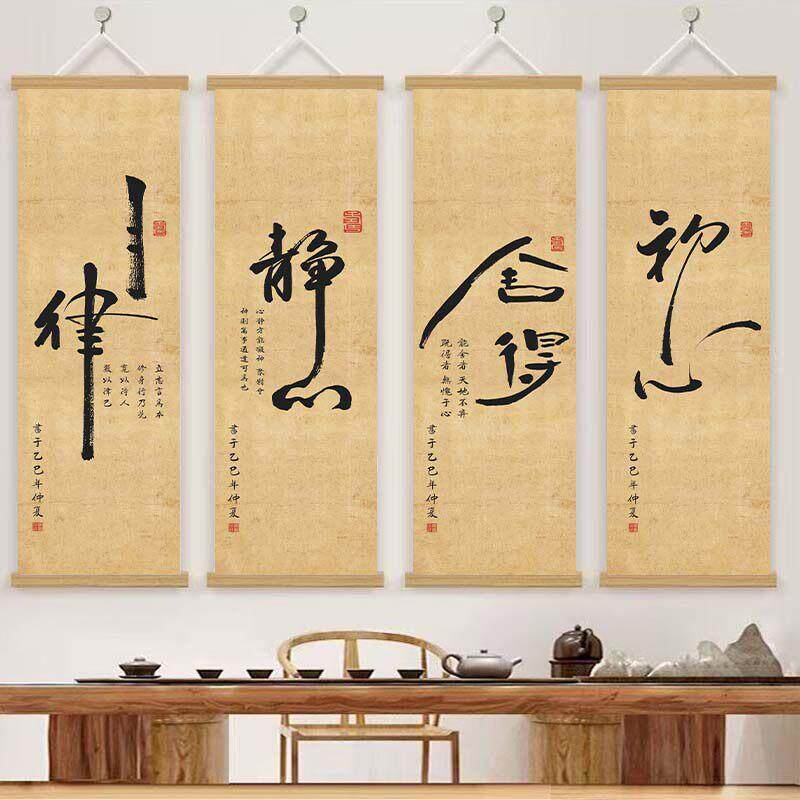 自律
立志言為本
修身行乃先
寬以待人
嚴以律己
書于乙巳年仲夏
静心
心静方能凝神
萬事通達可為也
書于乙巳年仲夏
舍得
能舍者 天地不棄
既得者 無愧于心
書于乙巳年仲夏
初心
書于乙巳年仲夏